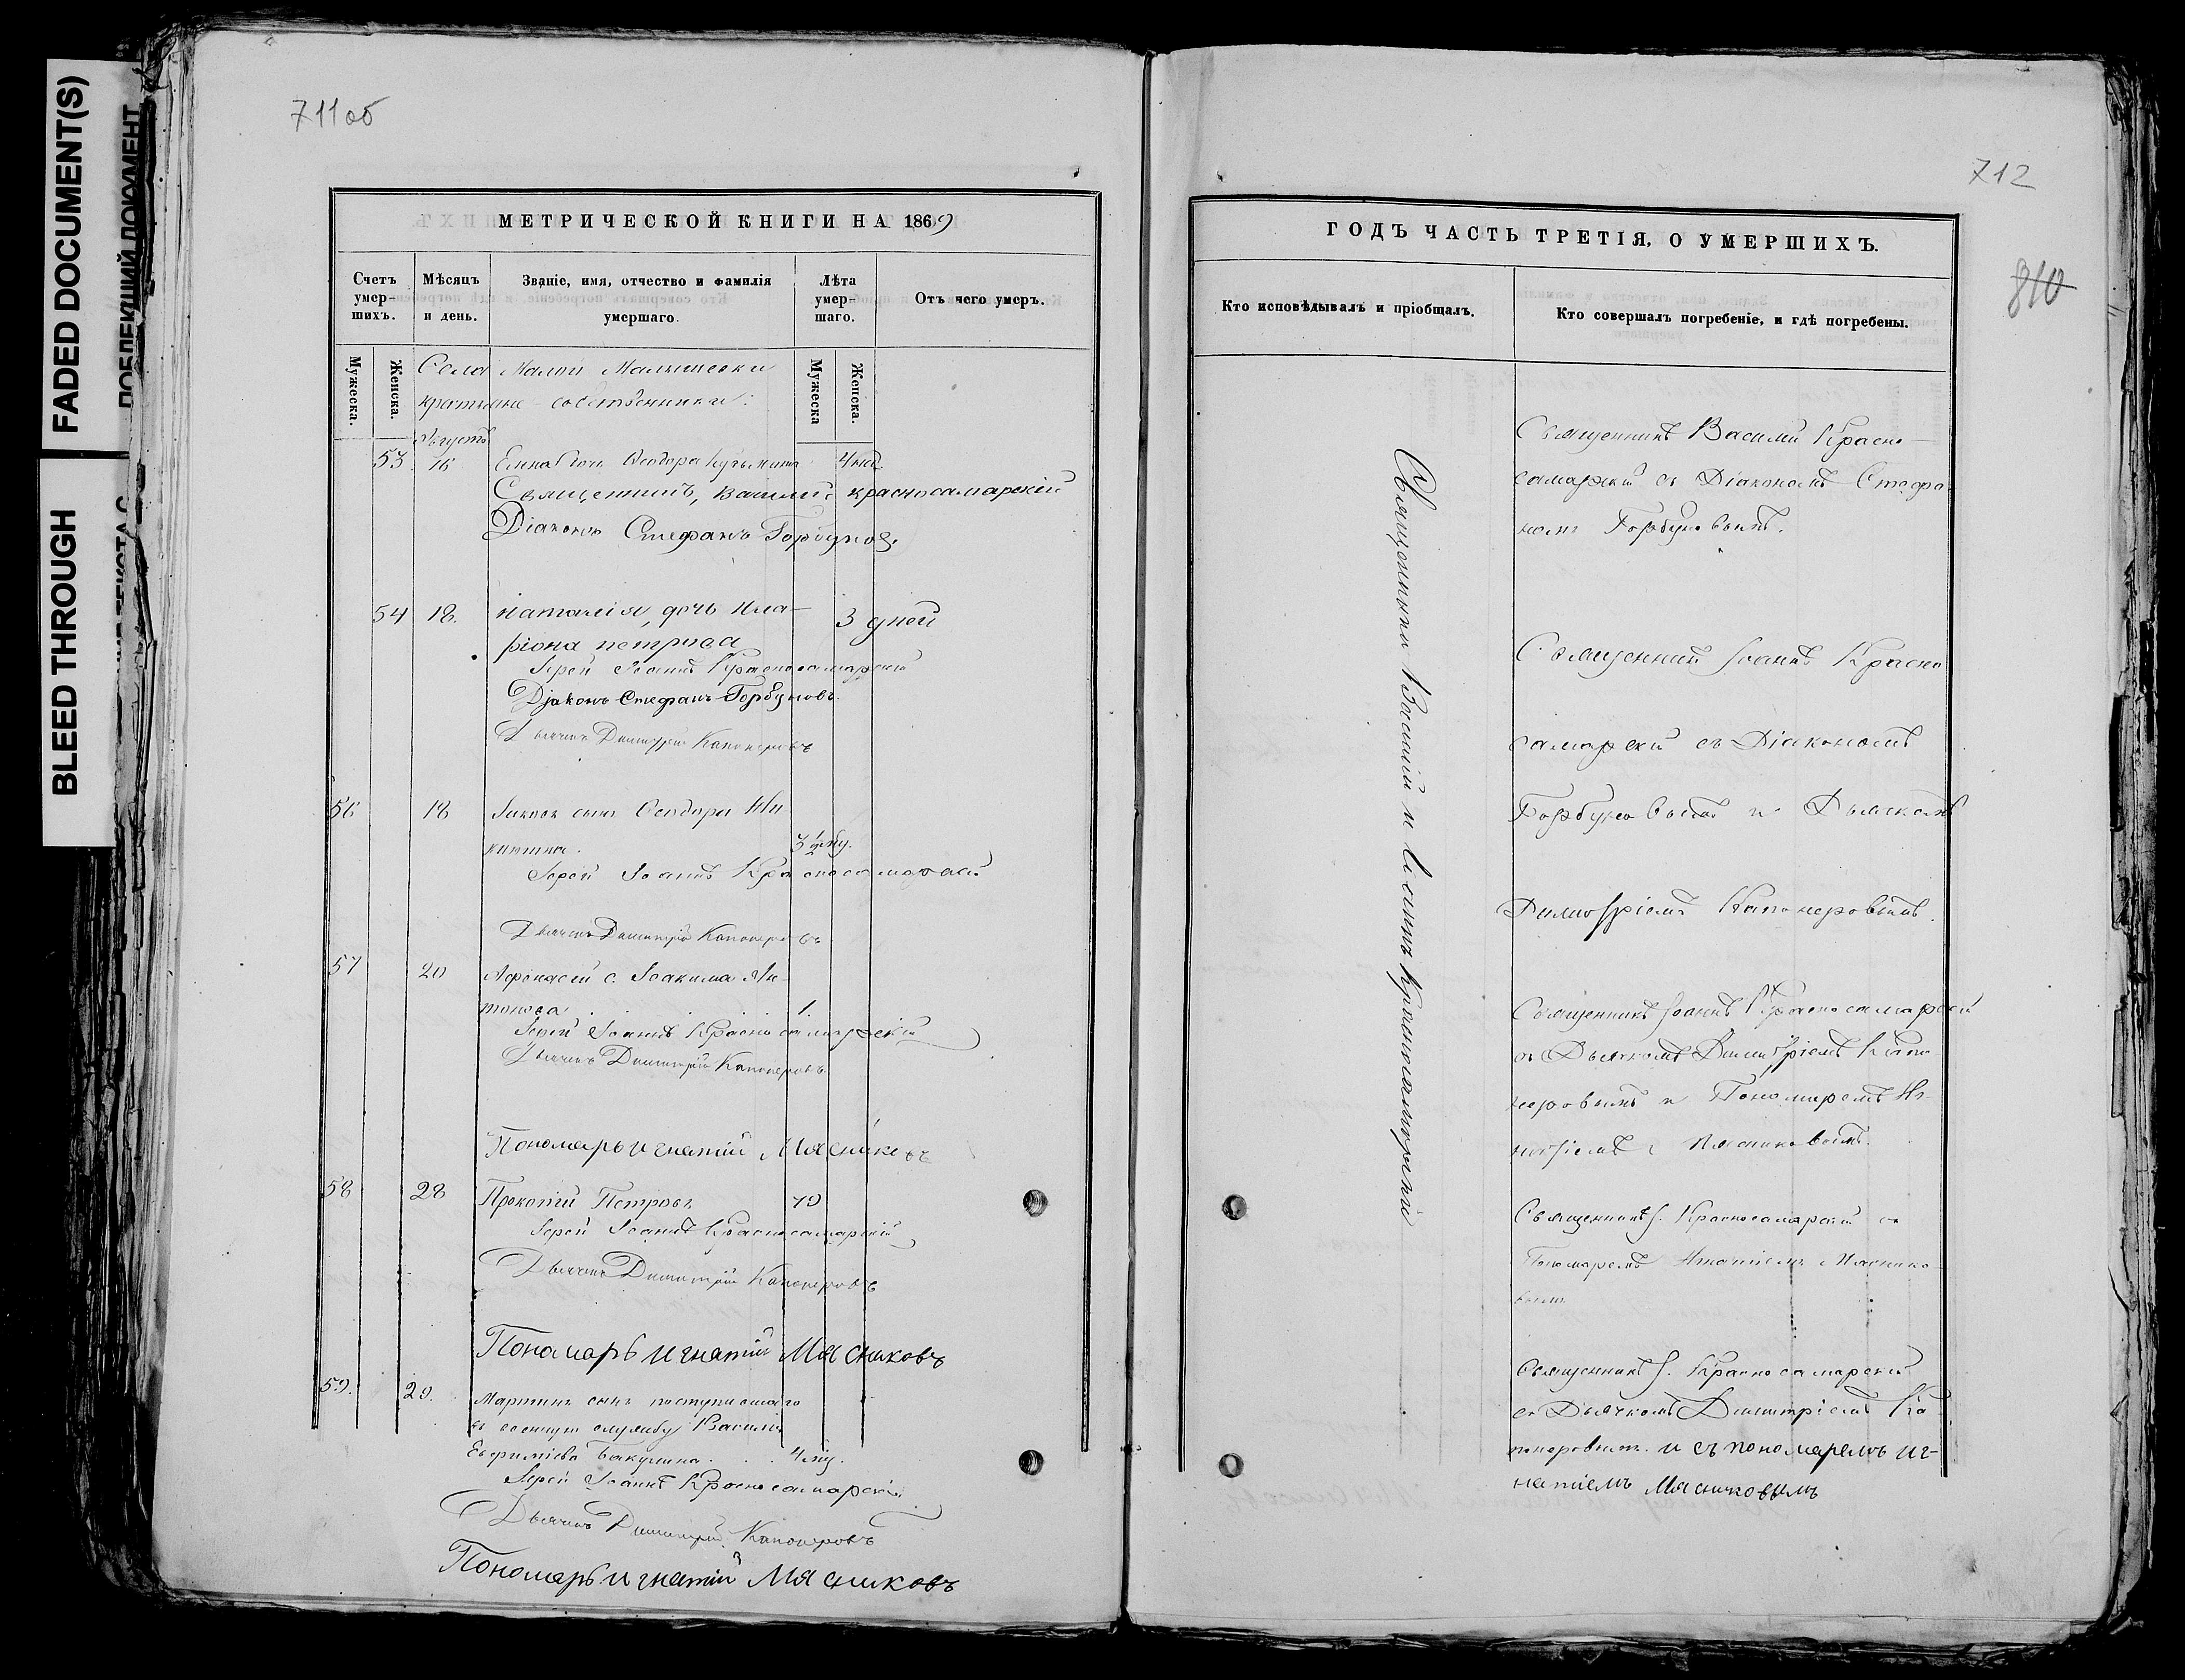 FADED DOCUMENT(S)
BLEED THROUGH
711об
МЕТРИЧЕСКОЙ КНИГИ НА 1869
Счетъ умер-шихъ.
Мѣсяцъ и день.
Званіе, имя, отчество и фамилія умершаго.
Лѣта умер-шаго.
Отъ чего умеръ.
Мужеска.
Женска.
Мужеска
Женска.
Села Малой Малышевки
крестьяне собственники:
Августъ
53 16 дочь Ѳеодора 4 нед.
Священникъ, Василій красносамарскій
Діаконъ Стефанъ Горбуновъ
54 18. Наталія, дочь Ила- 3 дней
ріона петрова
Іерей Іоаннъ Красносамарскій
Діаконъ Стефанъ Горбуновъ
Дьячекъ Димитрій Капонеровъ
56 18 сынъ Ѳеодора Ни
китина. 3 1/2 году.
Іерей Іоаннъ Красносамарскій
Дьячекъ Димитрій Капонеровъ
57 20 Аѳонасій с. Іоакима Ан-
тонова 1.
Іерей Іоаннъ Красносамарскій
Дьячекъ Димитрій Капонеровъ
Пономарь игнатій Мясниковъ
58 28 Прокопій Петровъ 79
Іерей Іоаннъ Красносамарскій
Дьячекъ Димитрій Капонеровъ
Пономарь игнатій Мясниковъ
59. 29. Мартинъ сынъ поступившаго
въ военную службу Василія
Евфиміева Бакулина . . . 4
Іерей Іоаннъ Красносамарскій
Дьячекъ Димитрій Капонеровъ
Пономарь игнатій Мясниковъ
712
810
ГОДЪ ЧАСТЬ ТРЕТІЯ, О УМЕРШИХЪ.
Кто исповѣдывалъ и пріобщалъ.
Кто совершалъ погребеніе, и гдѣ погребены.
Священники Василій и Іоаннъ Красносамарскій
Священникъ Василій Красно-
самарскій съ Діакономъ Стефа
номъ Горбуновымъ.
Священникъ Іоаннъ Красно
самарскій съ Діакономъ
Горбуновымъ и Дьячкомъ
Димитріемъ Капонеровымъ.
Священникъ Іоаннъ Красносамарскій
съ Дьячкомъ Димитріемъ Капо
неровымъ и Пономаремъ Иг-
натіемъ Мясниковымъ.
Священникъ І. Красносамарскій съ
Пономаремъ Игнатіемъ Мяснико
вымъ
Священникъ І. Красносамарскій
съ Дьячкомъ Димитріемъ Ка
понеровымъ. и съ пономаремъ иг-
натіемъ Мясниковымъ